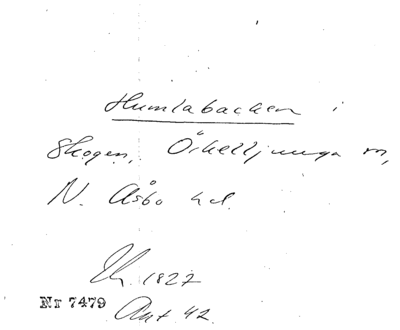 Humlabacken i
Skogen, Örkelljunga sn,
N. Åsbo hd.
Uh. 1827
Nr 7479
Ant 42